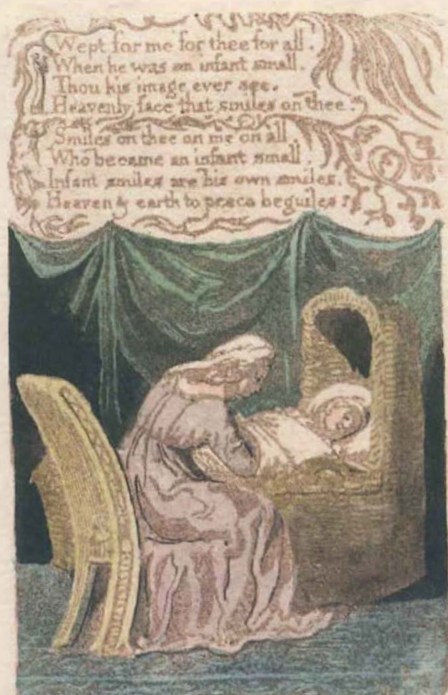 Wept for me for thee for all.
When he was an infant small.
Thou his image ever see.
Heavenly face that smiles on thee.
Smiles on thee on me on all
Who became an infant small.
Infant smiles are his own smiles.
Heaven & earth to peace beguiles.